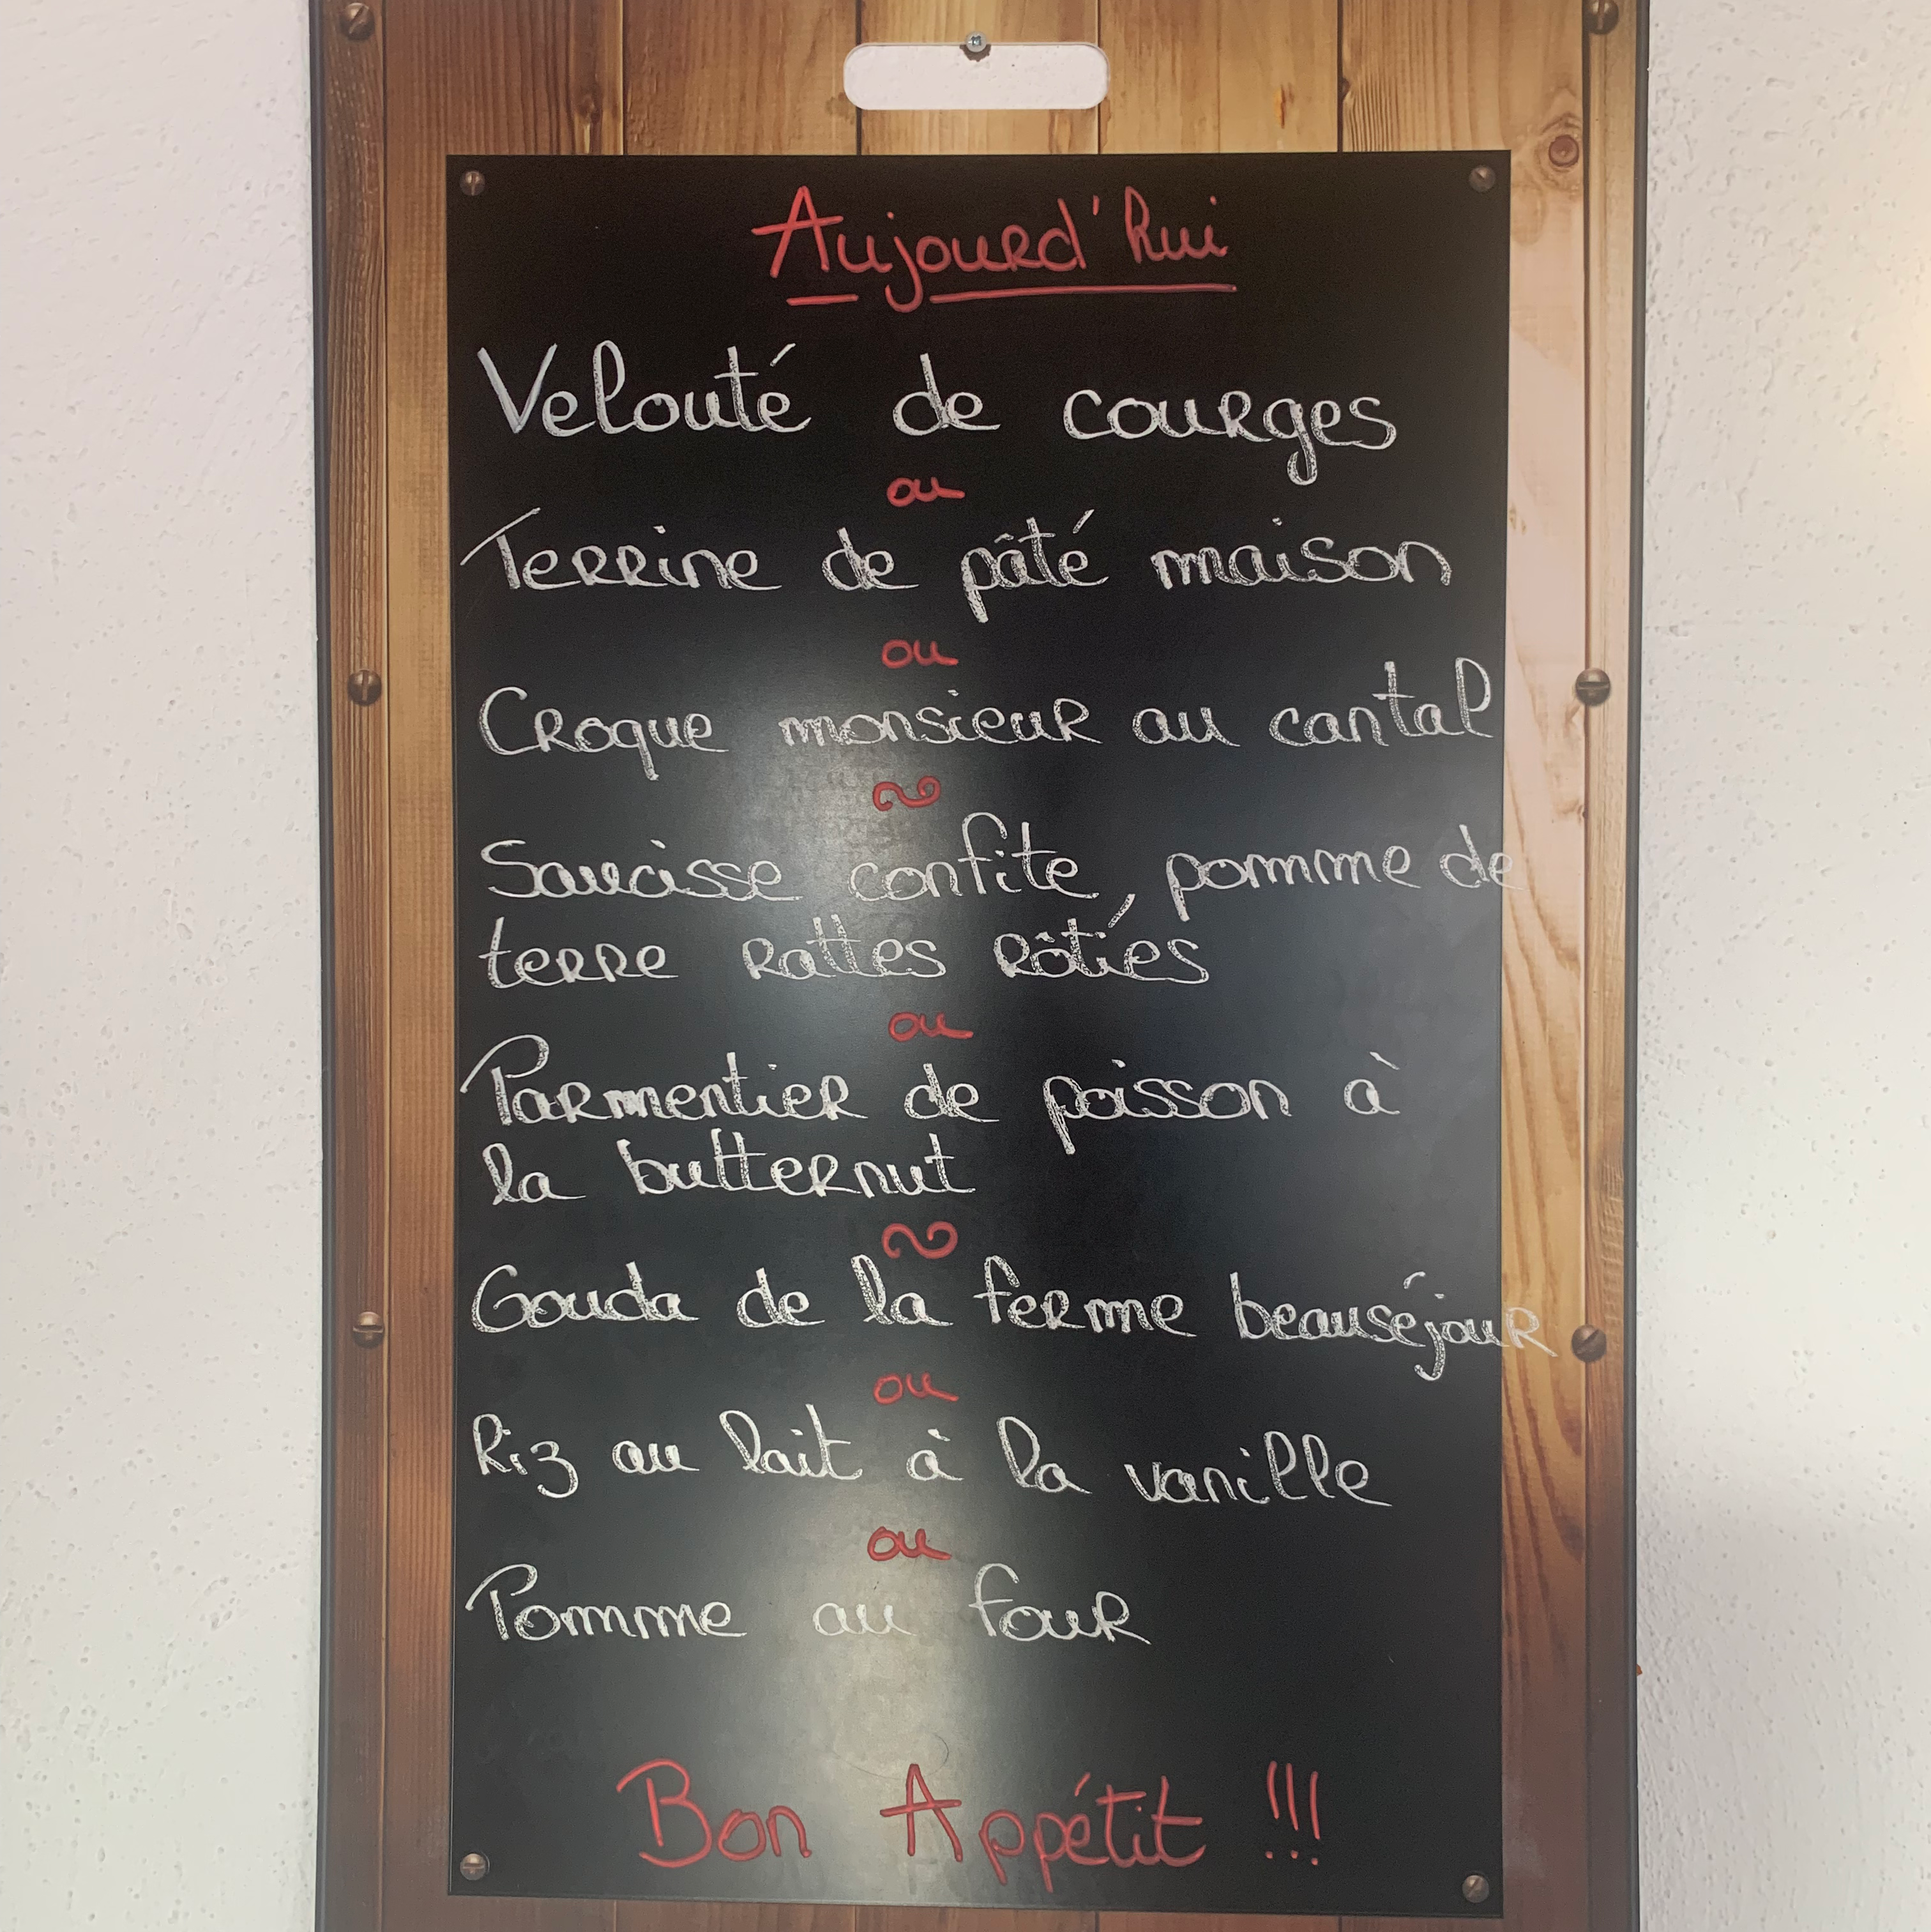 Aujourd'hui
Velouté de courges
ou
Terrine de pâté maison
ou
Croque monsieur au cantal
Saucisse confite, pomme de
terre rattes rôties
ou
Parmentier de poisson à
la butternut
Gouda de la ferme beauséjour
ou
Riz au lait à la vanille
ou
Pomme au four
Bon Appétit !!!